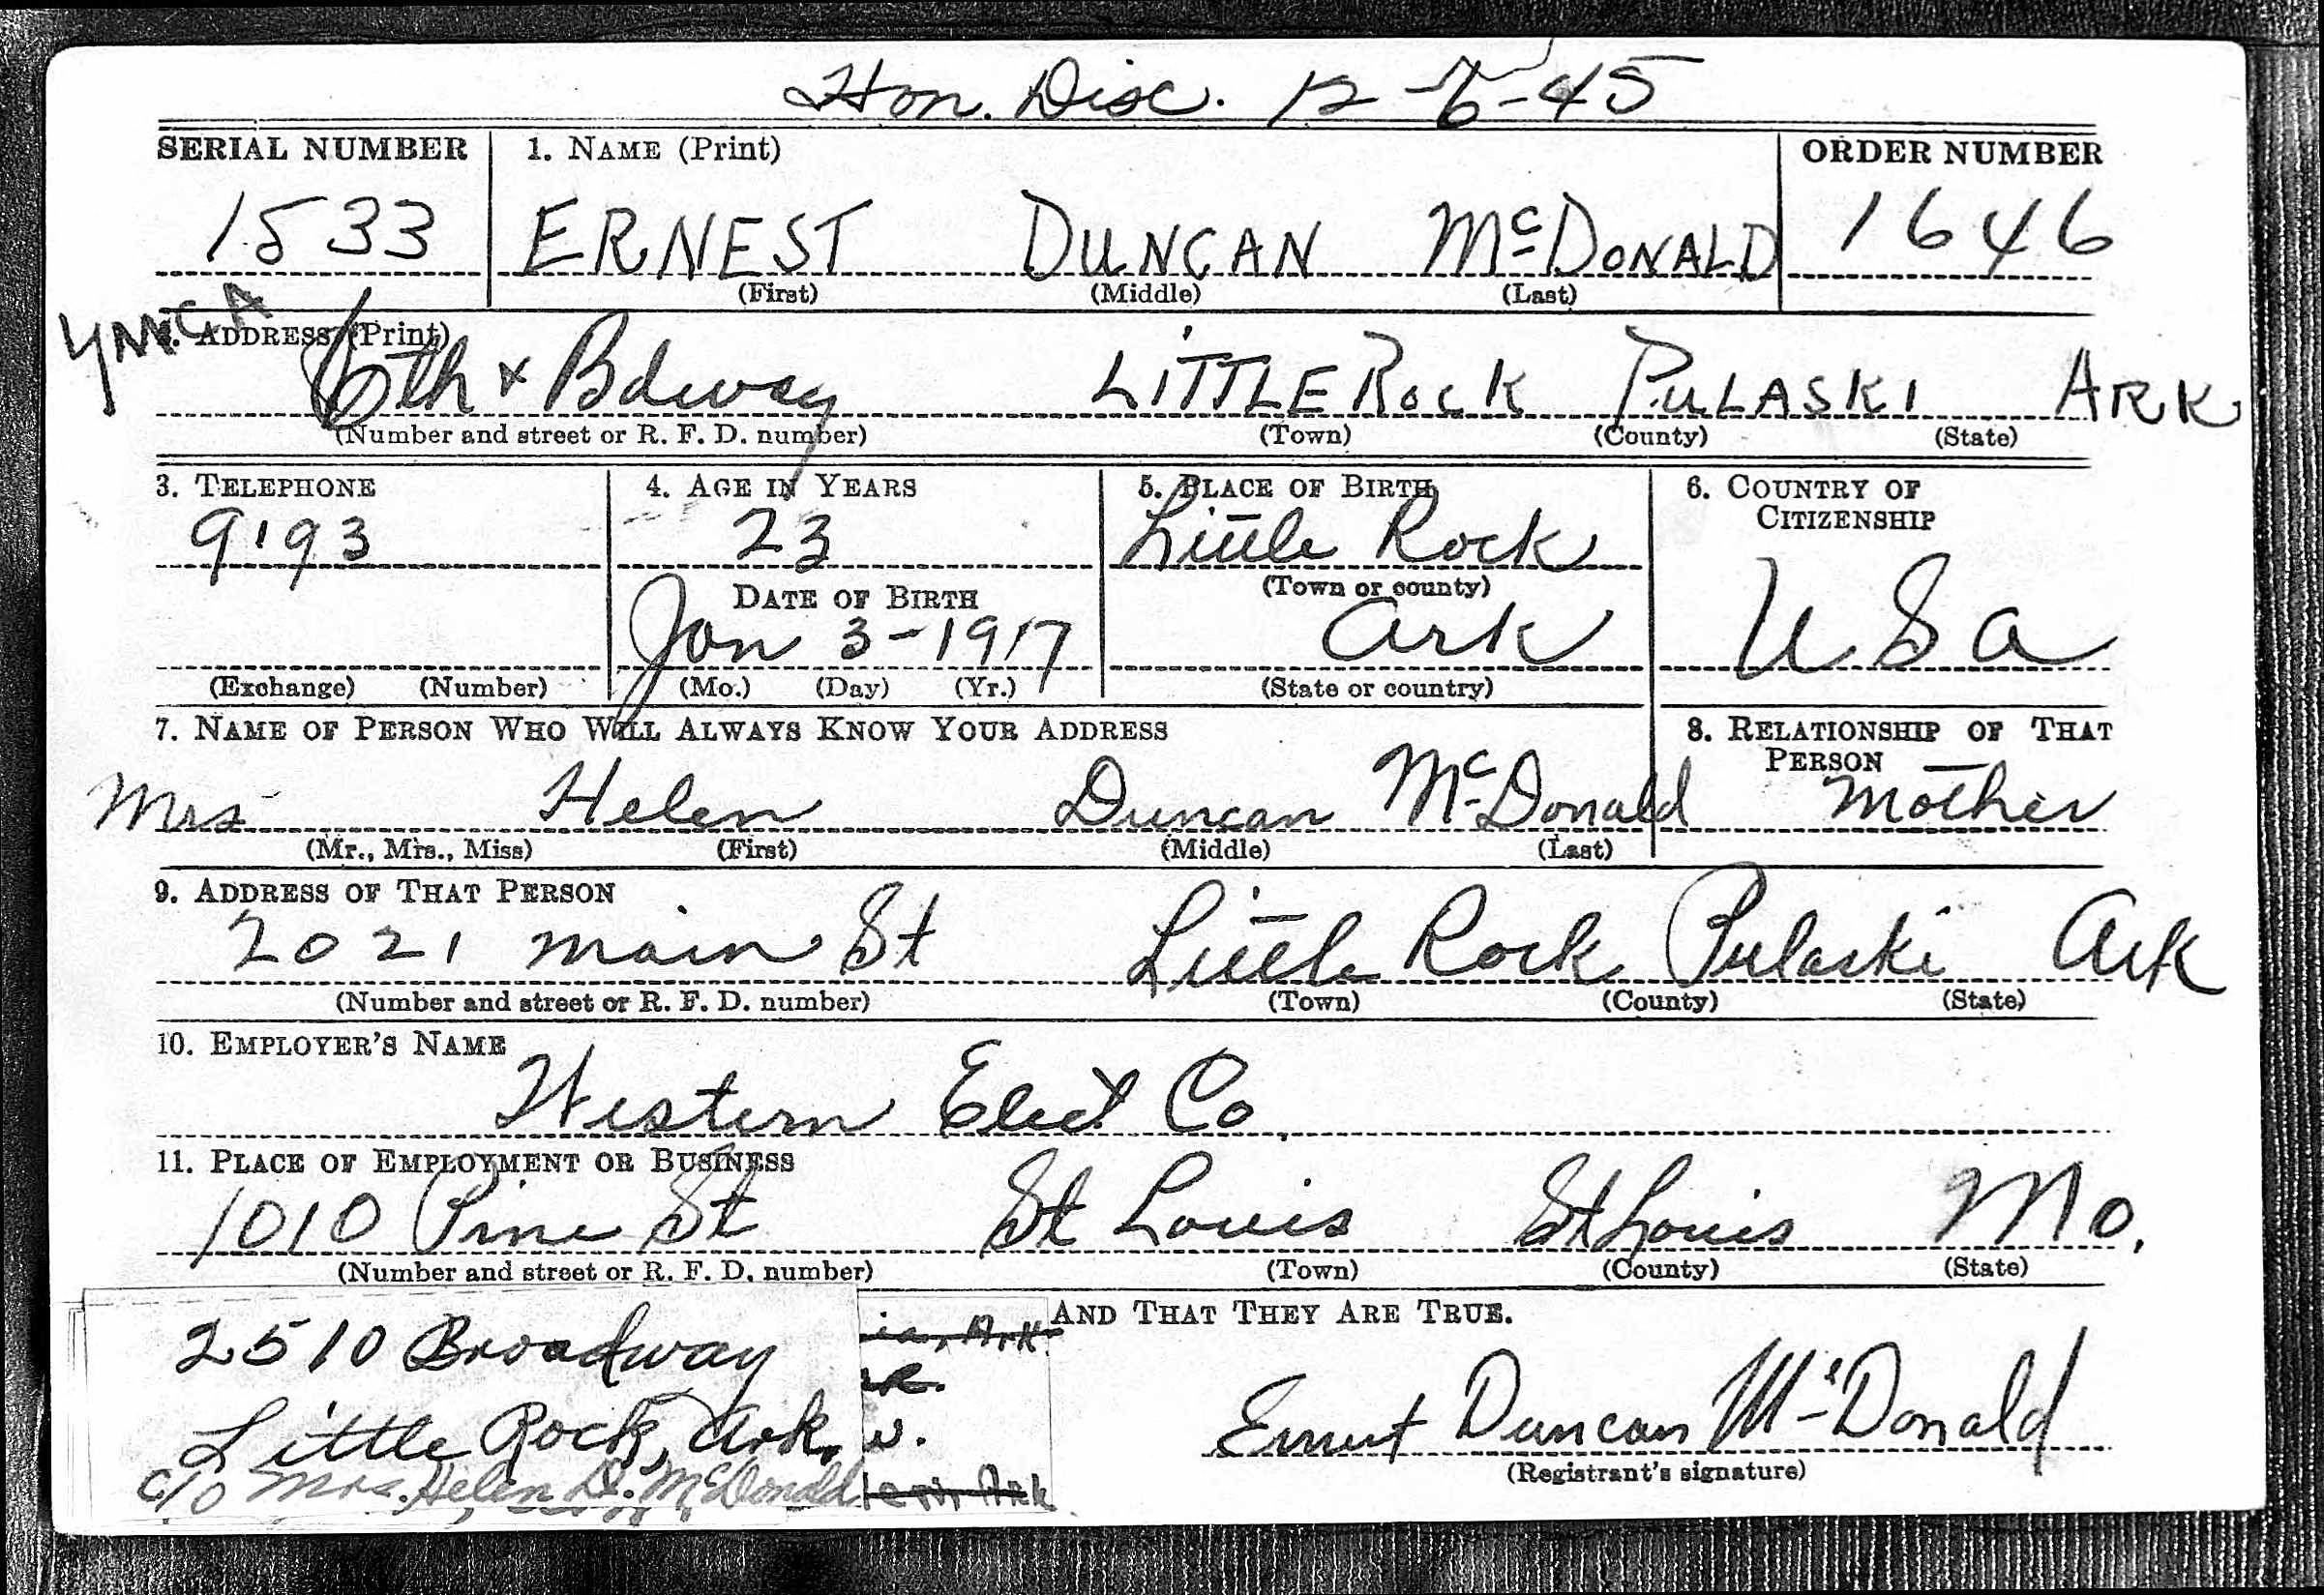 Hon. Disc. 12-6-45
SERIAL NUMBER 1. NAME (Print) ORDER NUMBER
1533 ERNEST DUNCAN McDONALD 1646
(First) (Middle) (Last)
YMCA
ADDRESS (Print)
6th & Bdway LITTLE ROCK PULASKI ARK
(Number and street or R. F. D. number) (Town) (County) (State)
3. TELEPHONE 4. AGE IN YEARS 5. PLACE OF BIRTH 6. COUNTRY OF CITIZENSHIP
9193 23 Little Rock
(Town or county)
DATE OF BIRTH
Jan 3-1917 Ark U S A
(Exchange) (Number) (Mo.) (Day) (Yr.) (State or country)
7. NAME OF PERSON WHO WILL ALWAYS KNOW YOUR ADDRESS 8. RELATIONSHIP OF THAT PERSON
Mrs Helen Duncan McDonald Mother
(Mr., Mrs., Miss) (First) (Middle) (Last)
9. ADDRESS OF THAT PERSON
2021 Main St Little Rock Pulaski Ark
(Number and street or R. F. D. number) (Town) (County) (State)
10. EMPLOYER'S NAME
Western Elect Co.
11. PLACE OF EMPLOYMENT OR BUSINESS
1010 Pine St St Louis St Louis Mo.
(Number and street or R. F. D. number) (Town) (County) (State)
AND THAT THEY ARE TRUE.
2510 Broadway
Little Rock, Ark.
c/o Mrs. Helen D. McDonald
Ark.
Ark
Ernest Duncan McDonald
(Registrant's signature)